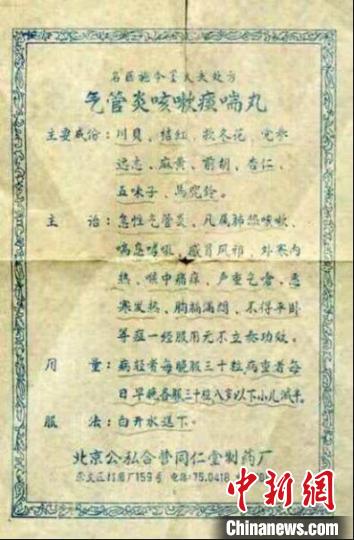 名医施今墨大夫处方
气管炎咳嗽痰喘丸
主要成份：川貝，桔红，款冬花，党参
远志，麻黄，前胡，杏仁
五味子，馬兜鈴。
主治：急性气管炎，凡属肺热咳嗽
喘息哮吼，感冒风邪，外寒内
热，喉中痛痒，严重气壅，恶
寒发热，胸福满闷，不得平卧
等症一经服用无不立奏功效。
用量：病轻者每晚服三十粒病重者每
日早晚各服三十粒八岁以下小儿减半。
服法：白开水送下。
北京公私合营同仁堂制药厂
崇文区打磨厂159号 电话：75.0418
中新網
Chinanews.com